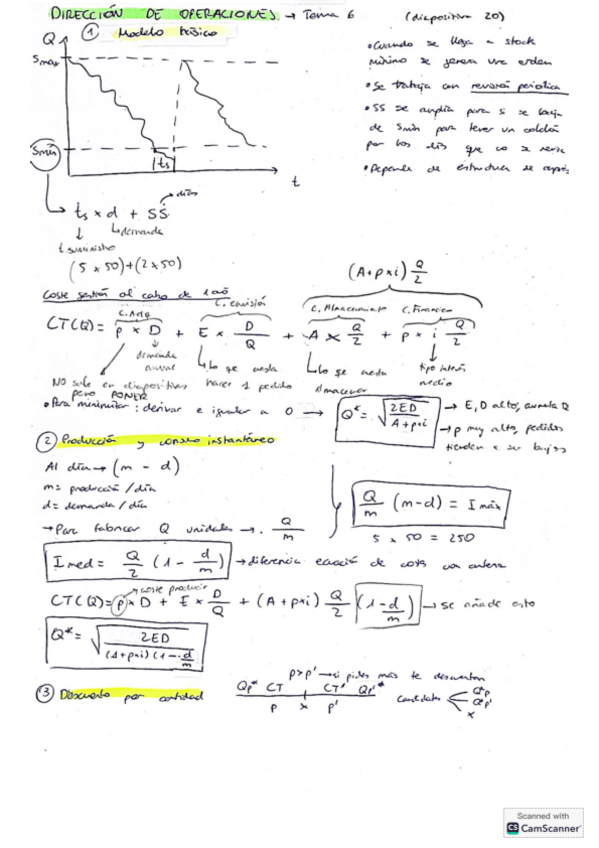 DIRECCIÓN DE OPERACIONES. → Tema 6 (diapositiva 20)
① Modelo básico
Q
Smax
Smin
ts
t
• Cuando se llega a stock
mínimo se genera una orden
• Se trabaja con revisión periódica
• SS se amplía para si se baja
de Smin para tener un colchón
por los días que co se
• Depende de estructura de
→ ts x d + SS → días
↓ ↳ demanda
t suministro
(5 x 50) + (2 x 50)
(A + p x i) Q/2
Coste gestión al cabo de 1 año
C. Adq. C. emisión C. Almacenamiento C. Financiero
CT(Q) = p x D + E x D/Q + A x Q/2 + p x i Q/2
demanda anual
↳ lo que cuesta hacer 1 pedido
↳ lo que cuesta almacenar
tipo interés medio
NO sale en diapositivas
pero PONER
• Para minimizar: derivar e igualar a 0 → Q* = √ 2ED / A + p x i
→ E, D alto, aumenta Q
→ p muy alto, pedidos
tienden a ser bajos
② Producción y consumo instantáneo
Al día → (m - d)
m = producción / día
d = demanda / día
→ Para fabricar Q unidades → . Q/m
Q/m (m-d) = I máx
5 x 50 = 250
I med = Q/2 (1 - d/m) → diferencia ecuación de costes con anterior
coste producir
CT(Q) = p x D + E x D/Q + (A + p x i) Q/2 (1 - d/m) → se añade esto
Q* = √ 2ED / (A + p x i)(1 - d/m)
p > p' → si pides más te descuentan
③ Descuento por cantidad
Qp* CT CT' Qp'*
p x p'
candidatos Q*p Q*p' x
Scanned with
CS CamScanner